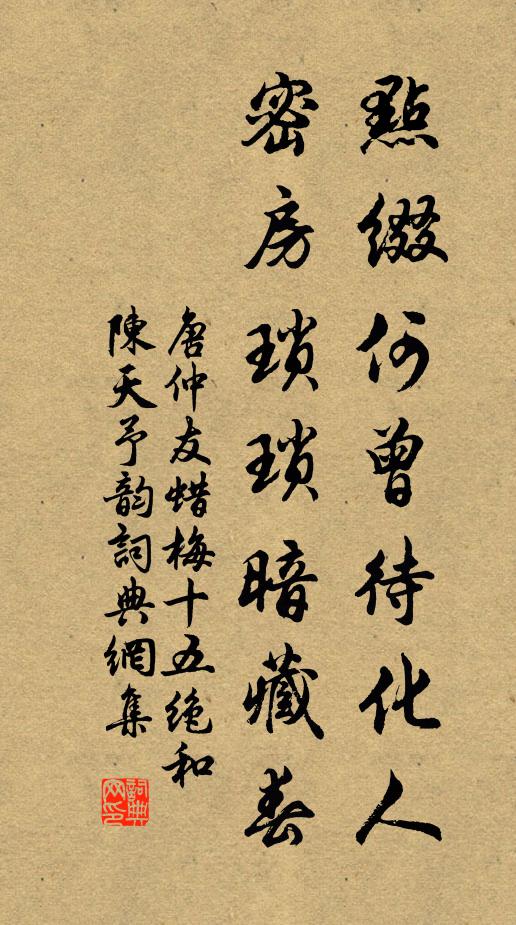 點綴何曾待化人
密房瑣瑣暗藏春
唐仲友蜡梅十五绝和
陳天予韵詞典網集
詞典
网印